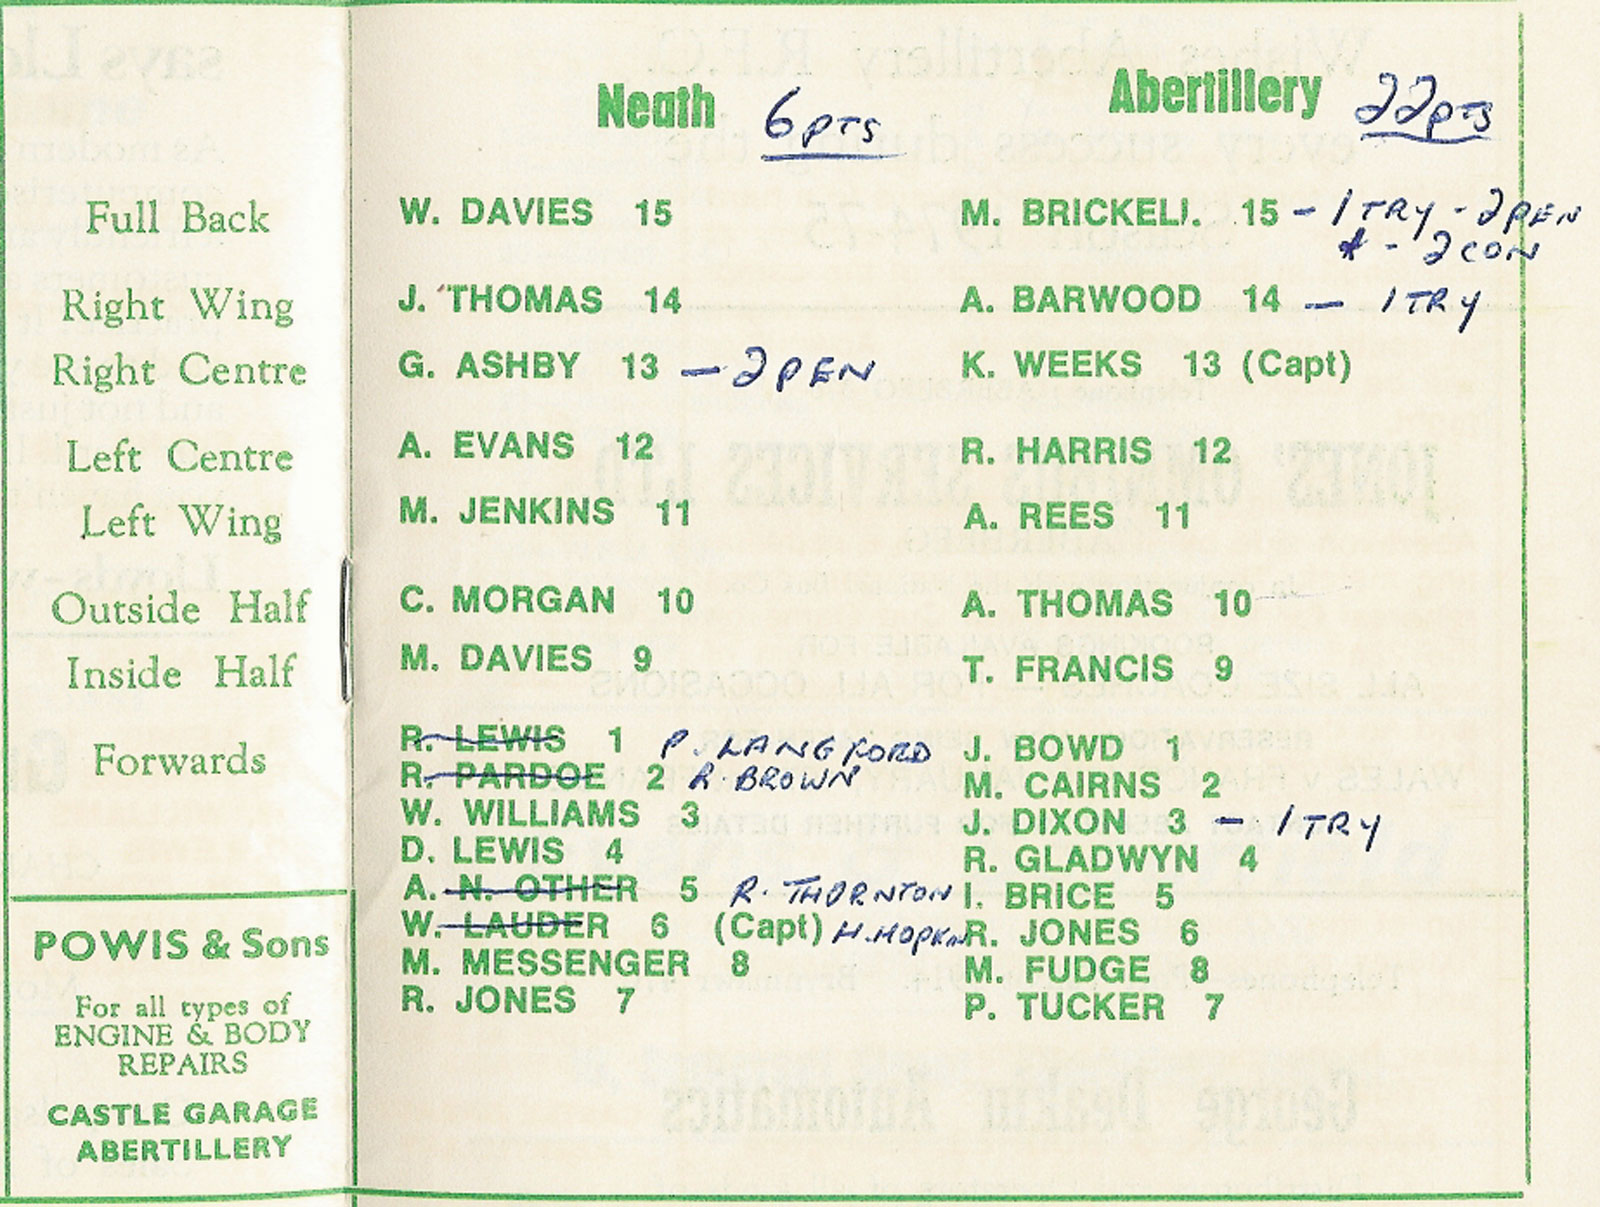 Neath 6 PTS Abertillery 22 PTS
Full Back W. DAVIES 15 M. BRICKELL 15 - 1 TRY - 2 PEN
- 2 CON
Right Wing J. THOMAS 14 A. BARWOOD 14 - 1 TRY
Right Centre G. ASHBY 13 - 2 PEN K. WEEKS 13 (Capt)
Left Centre A. EVANS 12 R. HARRIS 12
Left Wing M. JENKINS 11 A. REES 11
Outside Half C. MORGAN 10 A. THOMAS 10
Inside Half M. DAVIES 9 T. FRANCIS 9
Forwards R. LEWIS 1 P. LANGFORD J. BOWD 1
R. PARDOE 2 R. BROWN M. CAIRNS 2
W. WILLIAMS 3 J. DIXON 3 - 1 TRY
D. LEWIS 4 R. GLADWYN 4
A. N. OTHER 5 R. THORNTON I. BRICE 5
W. LAUDER 6 (Capt) H. HOPKIN R. JONES 6
M. MESSENGER 8 M. FUDGE 8
R. JONES 7 P. TUCKER 7
POWIS & Sons
For all types of
ENGINE & BODY
REPAIRS
CASTLE GARAGE
ABERTILLERY